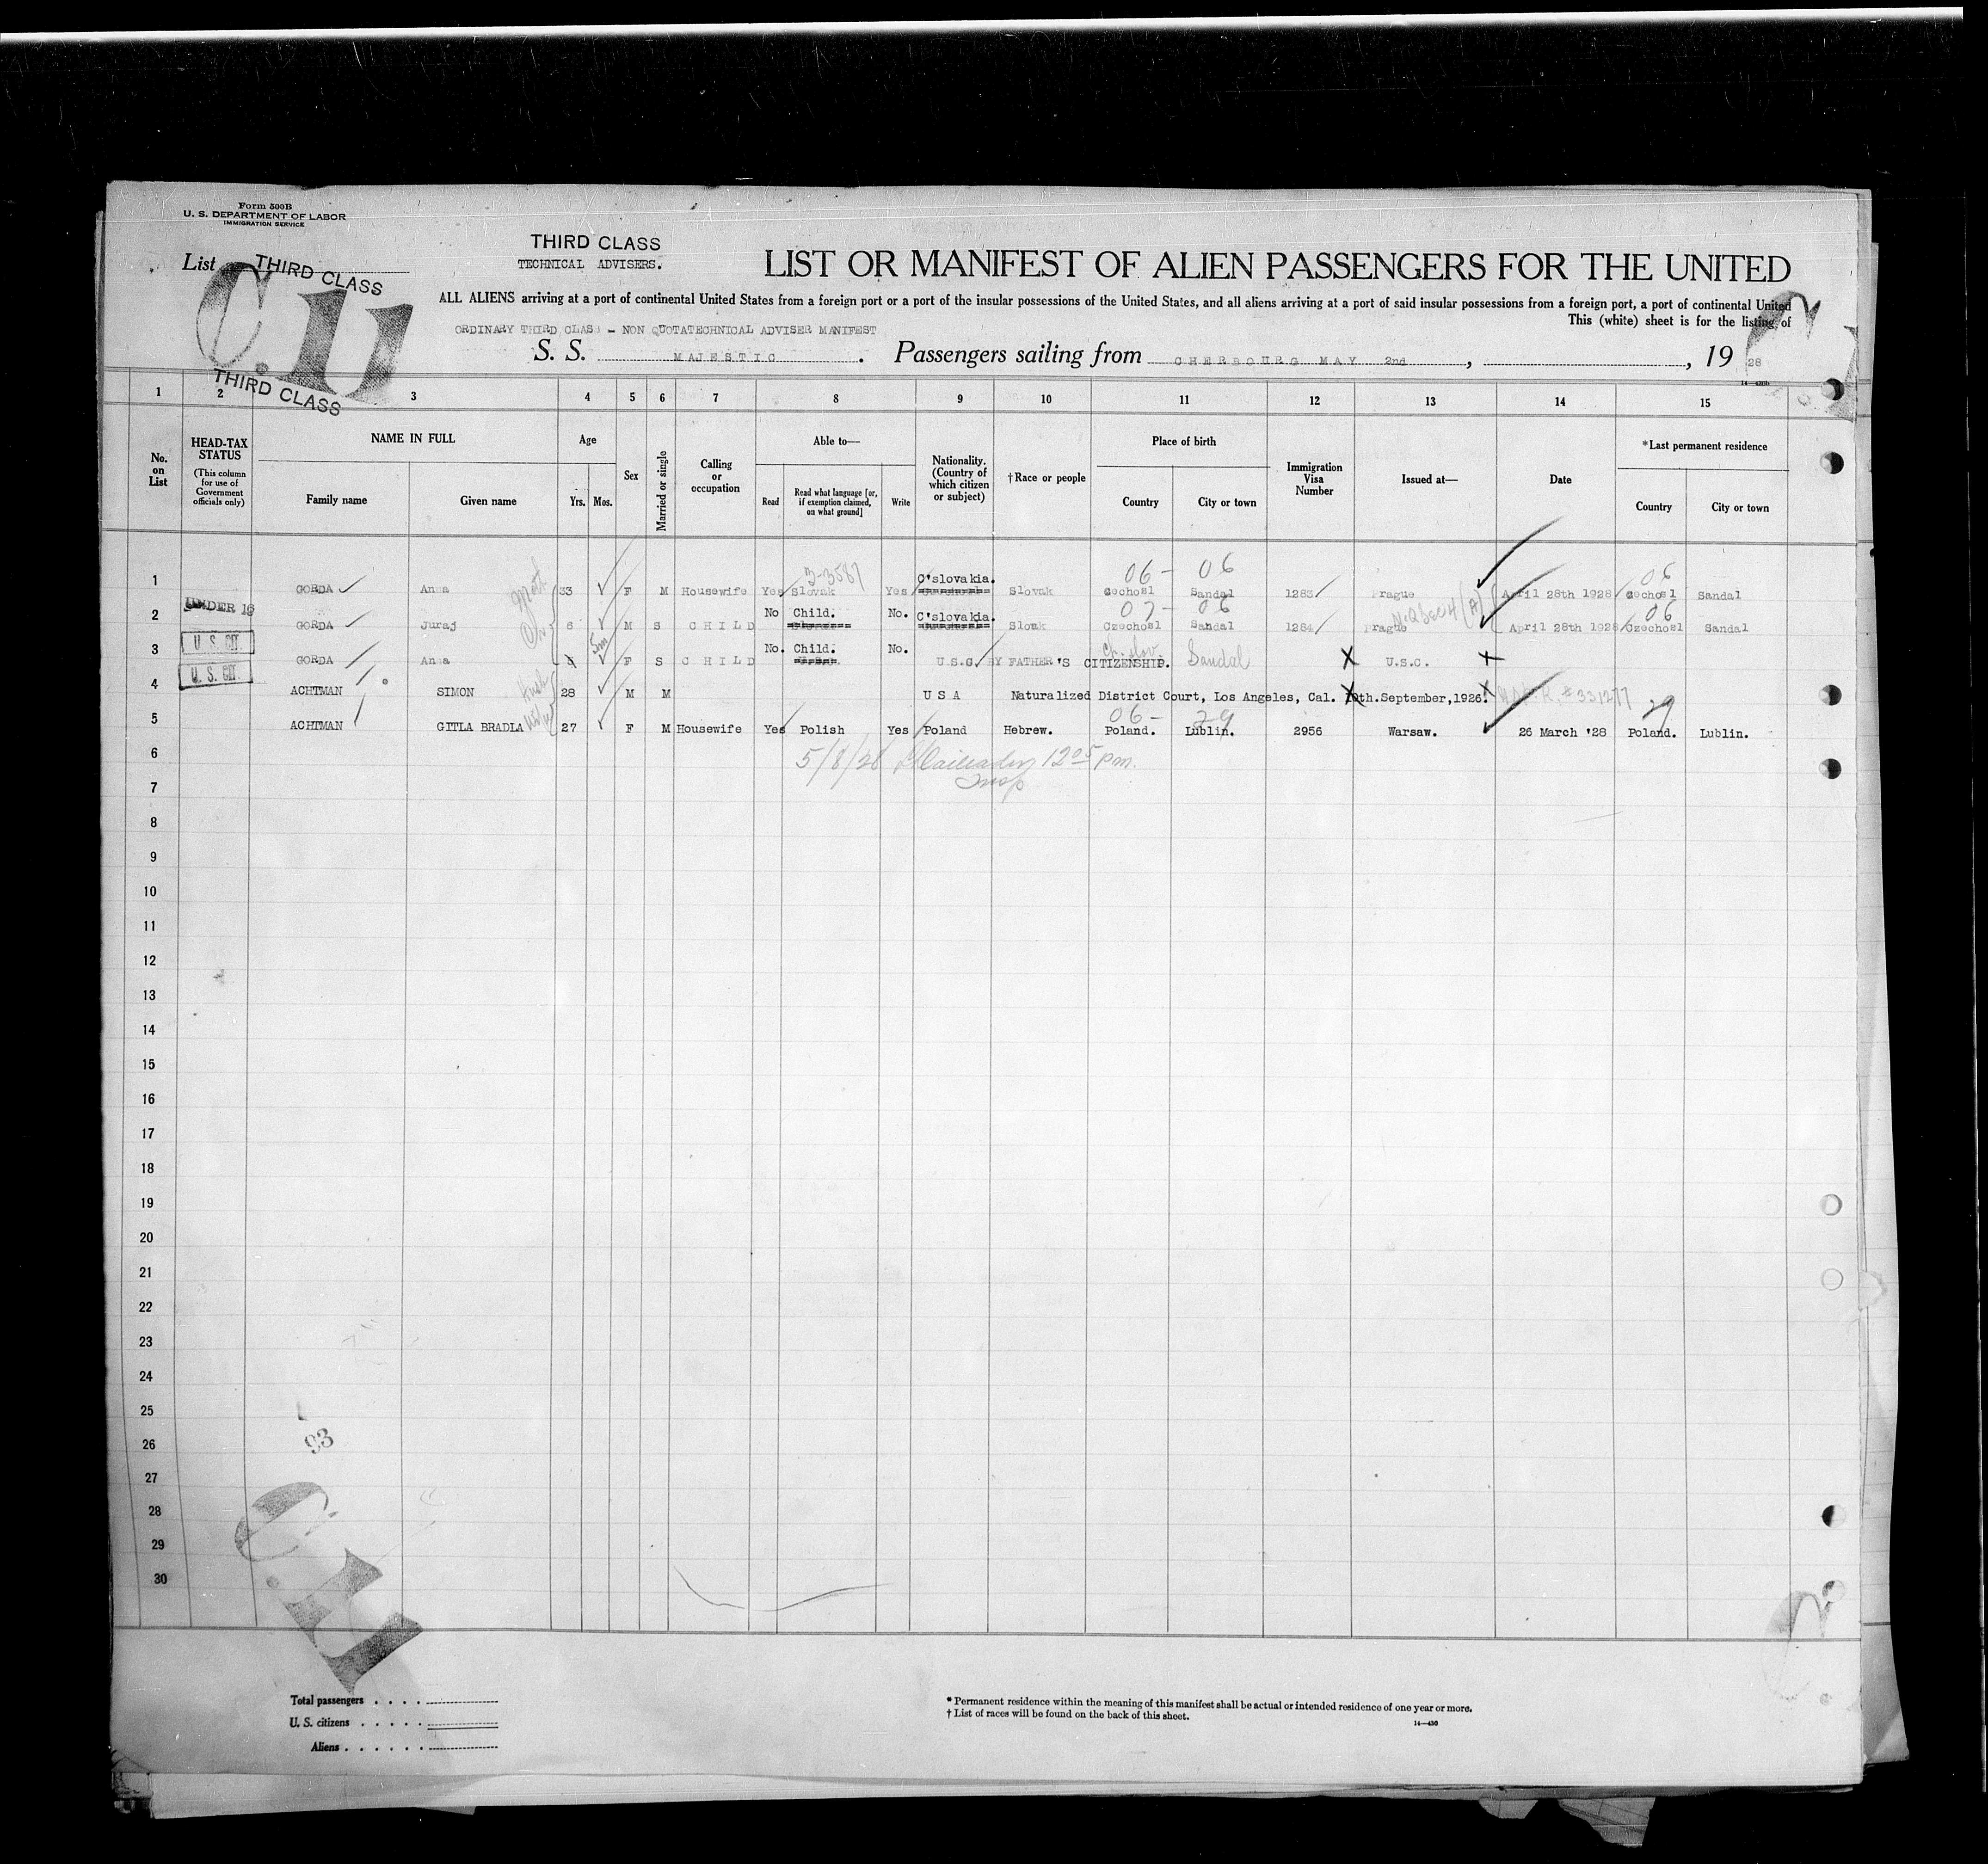 Form 500B
U. S. DEPARTMENT OF LABOR
IMMIGRATION SERVICE
List THIRD CLASS
THIRD CLASS
TECHNICAL ADVISERS.
LIST OR MANIFEST OF ALIEN PASSENGERS FOR THE UNITED
ALL ALIENS arriving at a port of continental United States from a foreign port or a port of the insular possessions of the United States, and all aliens arriving at a port of said insular possessions from a foreign port, a port of continental United
This (white) sheet is for the listing of
ORDINARY THIRD CLASS - NON QUOTATECHNICAL ADVISER MANIFEST
S. S. MAJESTIC. Passengers sailing from CHERBOURG MAY 2nd, , 1928
14-430b
THIRD CLASS
1 2 3 4 5 6 7 8 9 10 11 12 13 14 15
No. on List
HEAD-TAX STATUS
(This column for use of Government officials only)
NAME IN FULL
Family name Given name
Age
Yrs. Mos.
Sex
Married or single
Calling or occupation
Able to—
Read Read what language [or, if exemption claimed, on what ground] Write
Nationality. (Country of which citizen or subject)
†Race or people
Place of birth
Country City or town
Immigration Visa Number
Issued at—
Date
*Last permanent residence
Country City or town
3-3587 06 - 06 06
1 GORDA Anna 33 F M Housewife Yes Slovak Yes C'slovakia. Slovak Cechosl Sandal 1283 Prague April 28th 1928 Cechosl Sandal
07 - 06 06
2 UNDER 16 GORDA Juraj 6 M S CHILD No Child. No. C'slovakia. Slovak Czechosl Sandal 1284 Prague April 28th 1928 Czechosl Sandal
3 U. S. CIT. GORDA Anna 5m F S CHILD No. Child. No. U.S.C. BY FATHER'S CITIZENSHIP. Ch. slov. Sandal U.S.C.
4 U. S. CIT. ACHTMAN SIMON 28 M M USA Naturalized District Court, Los Angeles, Cal. 10th.September,1926. # 331277
06 - 29 29
5 ACHTMAN GITLA BRADLA wife 27 F M Housewife Yes Polish Yes Poland Hebrew. Poland. Lublin. 2956 Warsaw. 26 March '28 Poland. Lublin.
5/8/28 12 05 pm.
Insp
6
7
8
9
10
11
12
13
14
15
16
17
18
19
20
21
22
23
24
25
26
27
28
29
30
93
Total passengers . . . .
U. S. citizens . . . . .
Aliens . . . . . .
* Permanent residence within the meaning of this manifest shall be actual or intended residence of one year or more.
† List of races will be found on the back of this sheet.
14—430